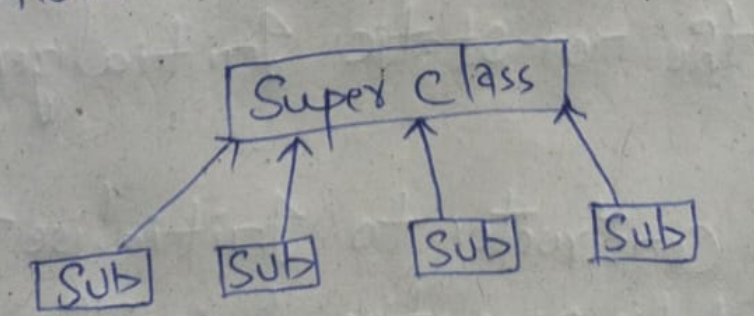 Super class
Sub Sub Sub Sub